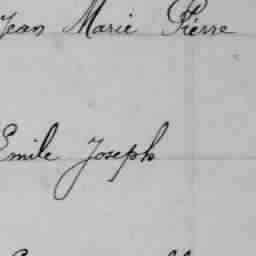 Jean Marie Pierre
Emile Joseph